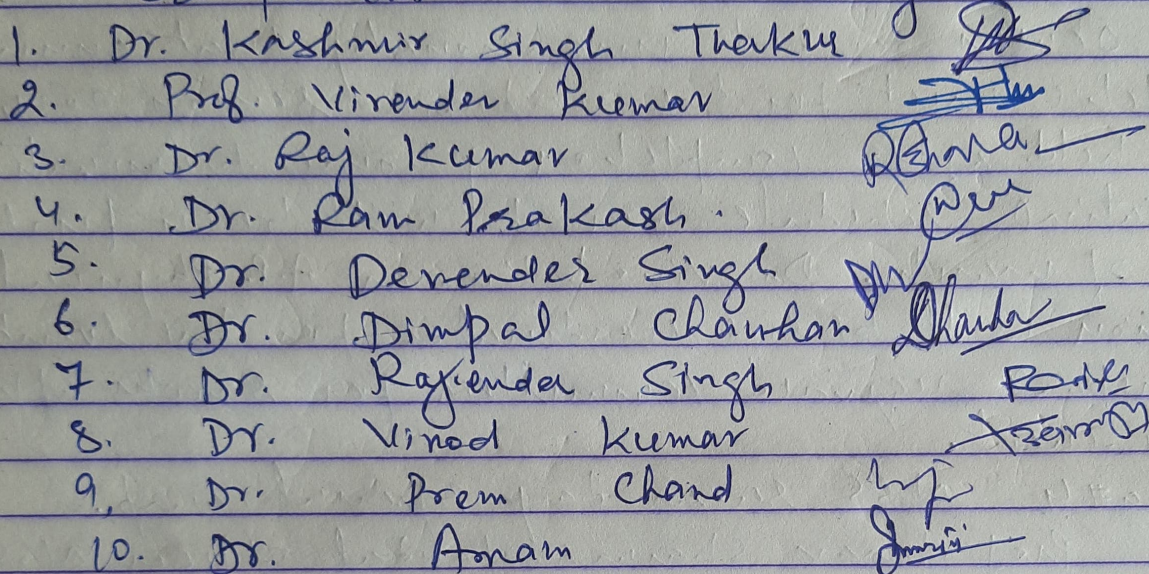 1. Dr. Kashmir Singh Thakur
2. Prof. Virender Kumar
3. Dr. Raj Kumar
4. Dr. Ram Prakash.
5. Dr. Devender Singh
6. Dr. Dimpal Chauhan
7. Dr. Rajender Singh
8. Dr. Vinod Kumar
9, Dr. Prem Chand
10. Dr. Anam